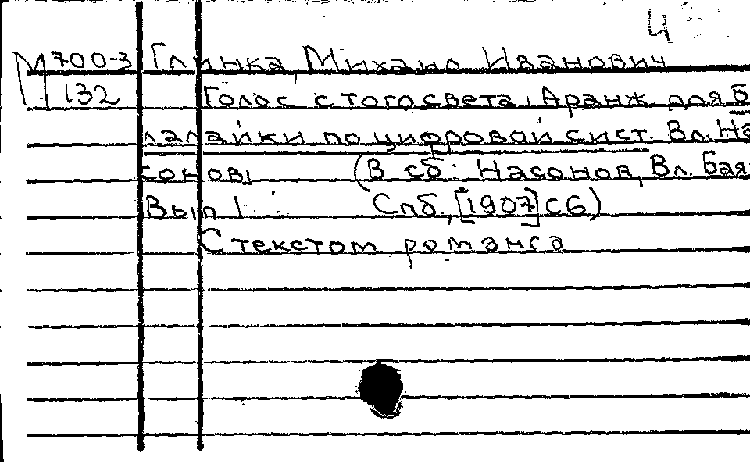 4
М 700-3 Глинка, Михаил Иванович
132 Голос с того света. Аранж. для ба
лалайки по цифровой сист. Вл. На
сонов. (В сб.: Насонов, Вл.
Вып 1 Спб., [1907] с 6)
С текстом романса